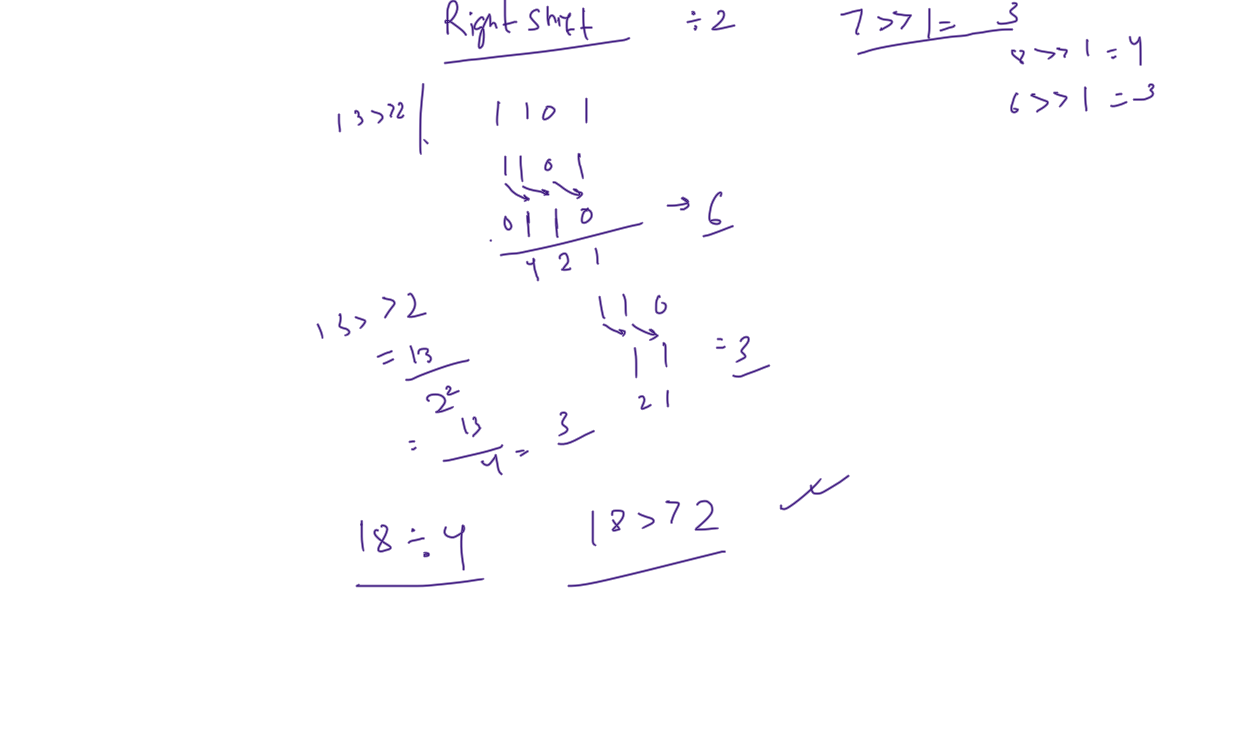 Right Shift ÷2 7 >> 1 = 3
8 >> 1 = 4
6 >> 1 = 3
13 >> 2 1 1 0 1
1 1 0 1
0 1 1 0 → 6
4 2 1
13 >> 2 1 1 0
= 13
1 1 = 3
2²
2 1
= 13 / 4 = 3
18 ÷ 4 18 >> 2